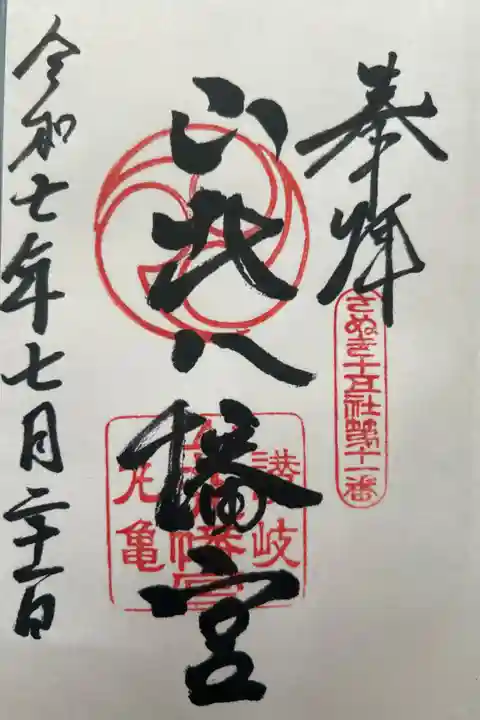 奉拝
さぬき十五社第十一番
山北八幡宮
讃岐
丸亀
令和七年七月二十一日